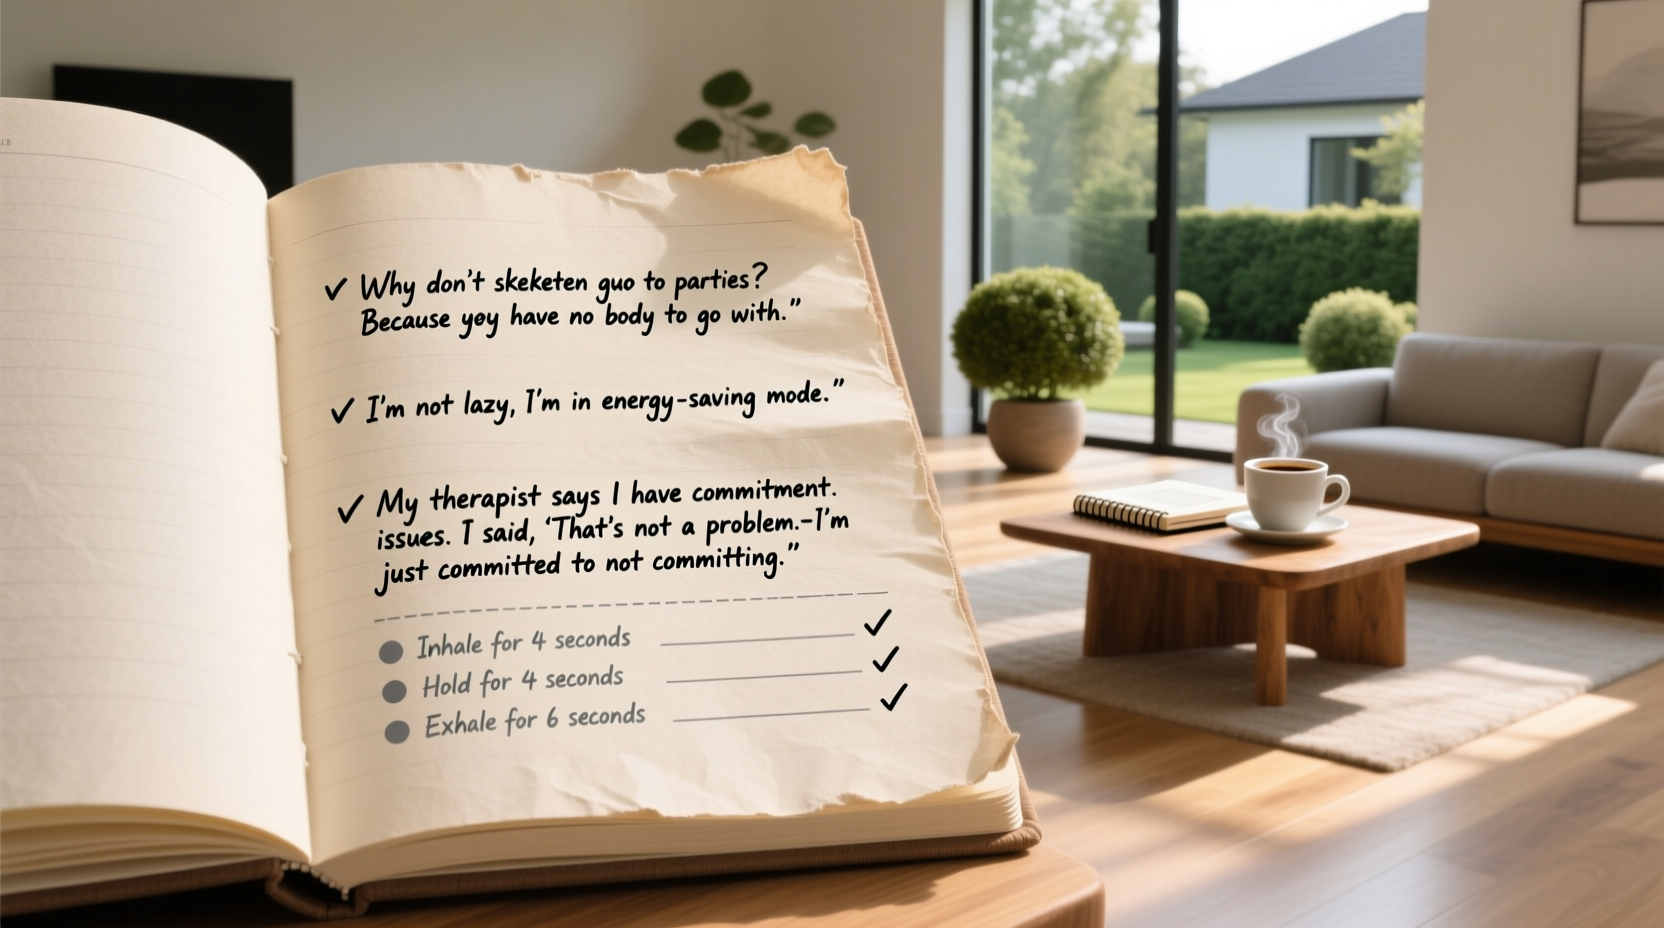 ✓ Why don't skeketen guo to parties?
Because yoy have no body to go with.”
✓ I'm not lazy, I'm in energy-saving mode.”
✓ My therapist says I have commitment.
issues. I said, ‘That's not a problem.–I'm
just committed to not committing.”
Inhale for 4 seconds ✓
Hold for 4 seconds ✓
Exhale for 6 seconds ✓